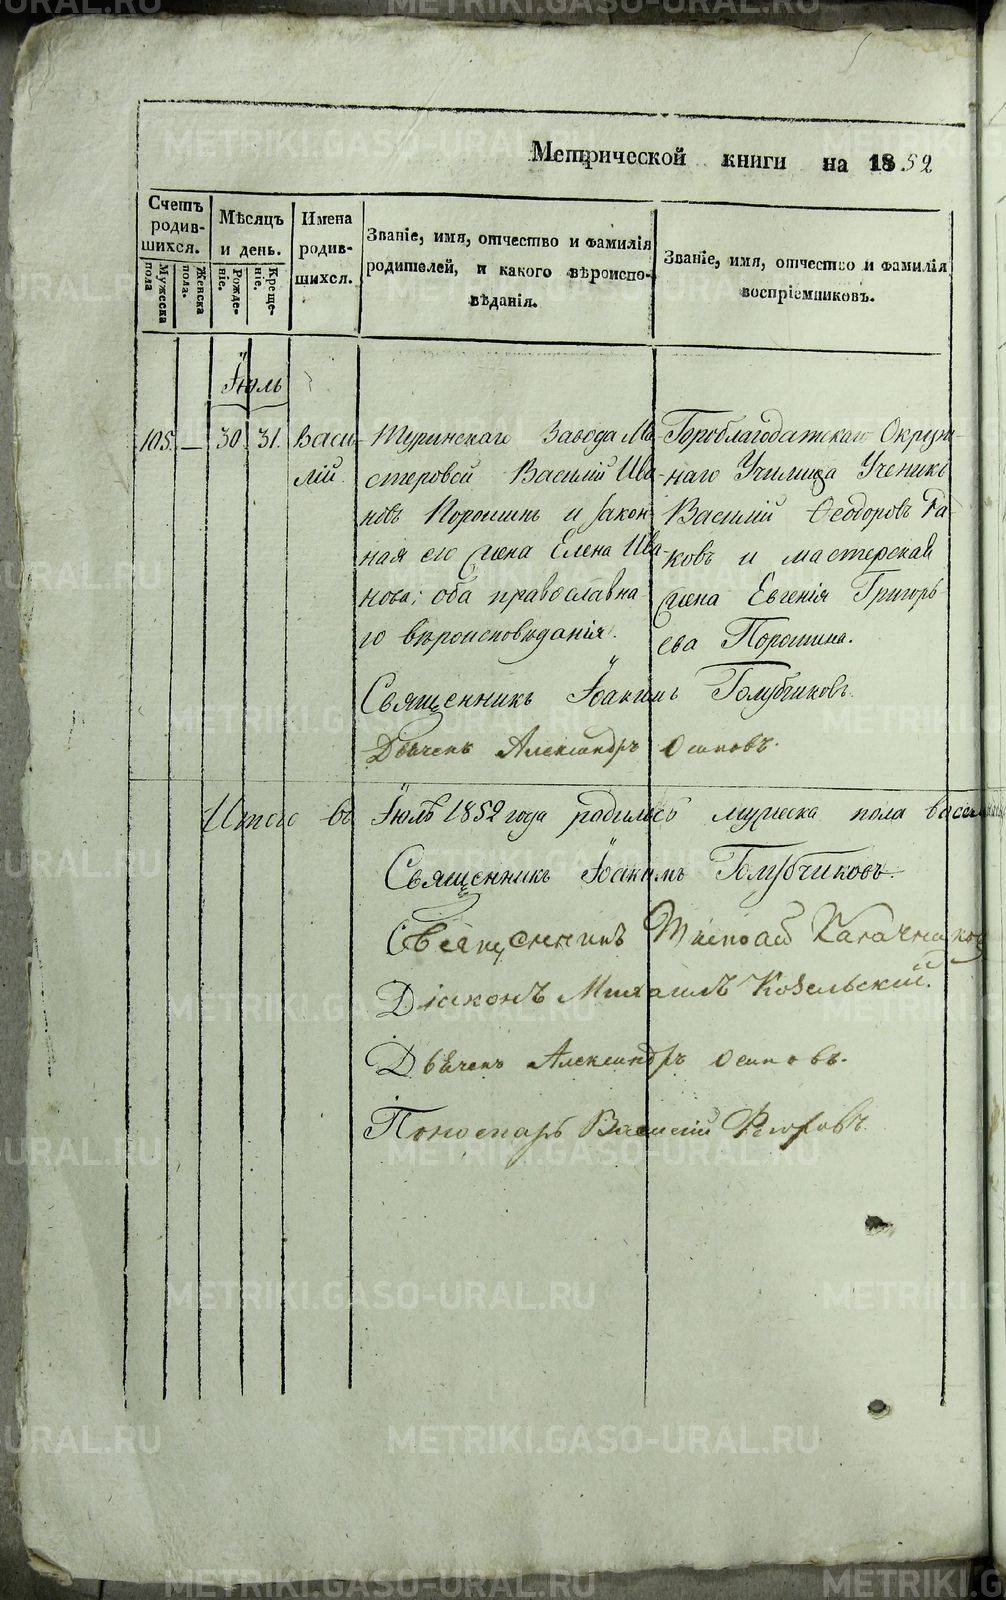 Метрической книги на 1852
Счетъ родившихся.
Мужеска пола
Женска пола.
Мѣсяцъ и день.
Рожденіе.
Крещеніе.
Имена родившихся.
Званіе, имя, отчество и фамилія родителей, и какого вѣроисповѣданія.
Званіе, имя, отчество и фамилія воспріемниковъ.
Іюль
105. — 30 31. Васи-
лій.
Туринскаго Завода Ма-
стеровой Василій Ива-
новъ Порошинъ и закон-
ная его жена Елена Ива-
нова; оба православна-
го вѣроисповѣданія.
Гороблагодатскаго Окруж-
наго Училища Ученикъ
Василій Ѳеодоровъ
ковъ и мастерская
жена Евгенія Григорь
ева Порошина.
Священникъ Іоакимъ Голубчиковъ.
Дьячекъ Александръ Осиповъ.
Итого въ Іюлѣ 1852 года родилось мужеска пола
Священникъ Іоакимъ Голубчиковъ.
Священникъ
Діаконъ Михаилъ Козельский.
Дьячекъ Александръ Осиповъ.
Пономарь Василій
METRIKI.GASO-URAL.RU